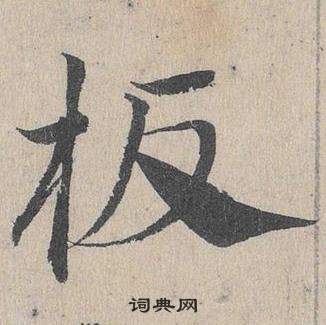 板
词典网